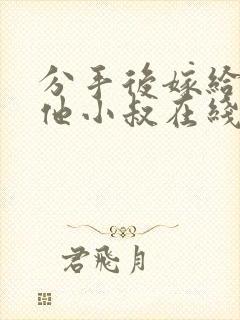 分手後嫁給
他小叔在綫
君飛月